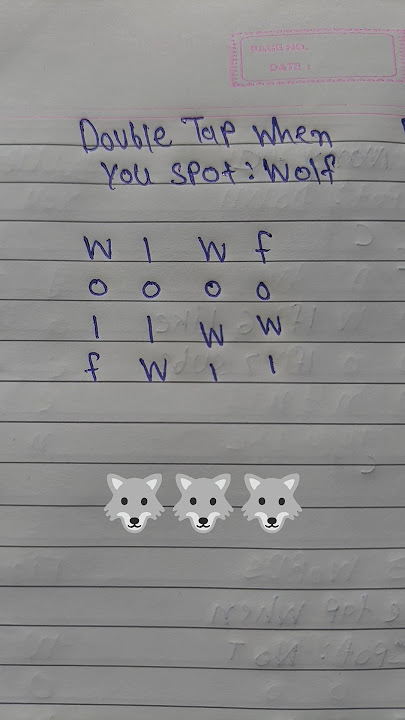 PAGE NO.
DATE :
Double Tap When
You Spot : Wolf
W l W f
o o o o
l l W W
f W l l